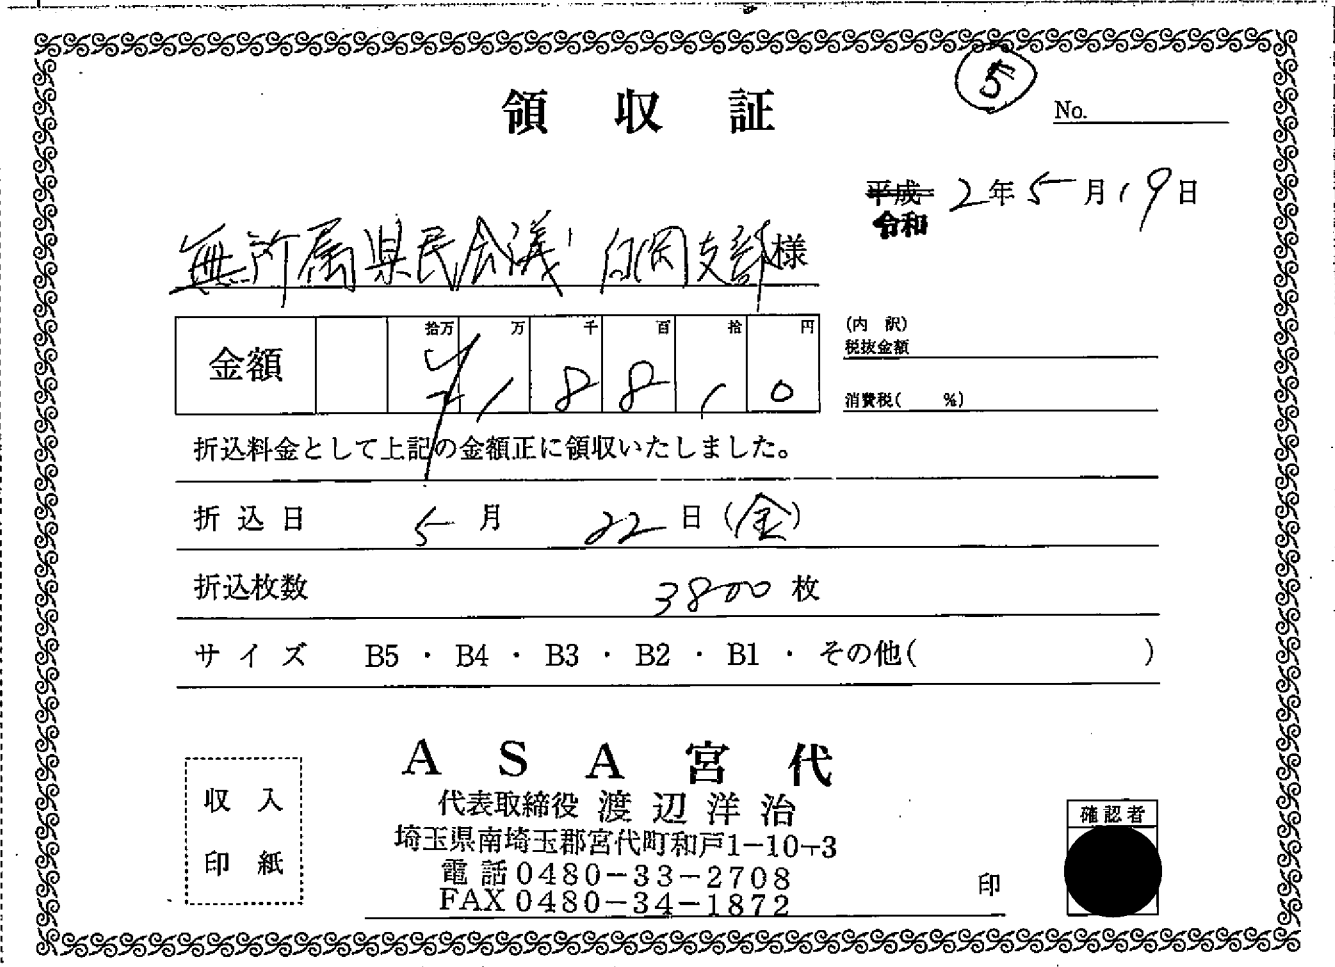 ⑤
領収証
No.
平成 2年5月19日
令和
無所属県民会議 白岡支部様
金額 拾万 万 千 百 拾 円
¥ 1 8 8 1 0
(内訳)
税抜金額
消費税( %)
折込料金として上記の金額正に領収いたしました。
折込日 5月 22日(金)
折込枚数 3800枚
サイズ B5・B4・B3・B2・B1・その他( )
ASA宮代
代表取締役 渡辺洋治
埼玉県南埼玉郡宮代町和戸1-10-3
電話0480-33-2708
FAX0480-34-1872
収入
印紙
印
確認者